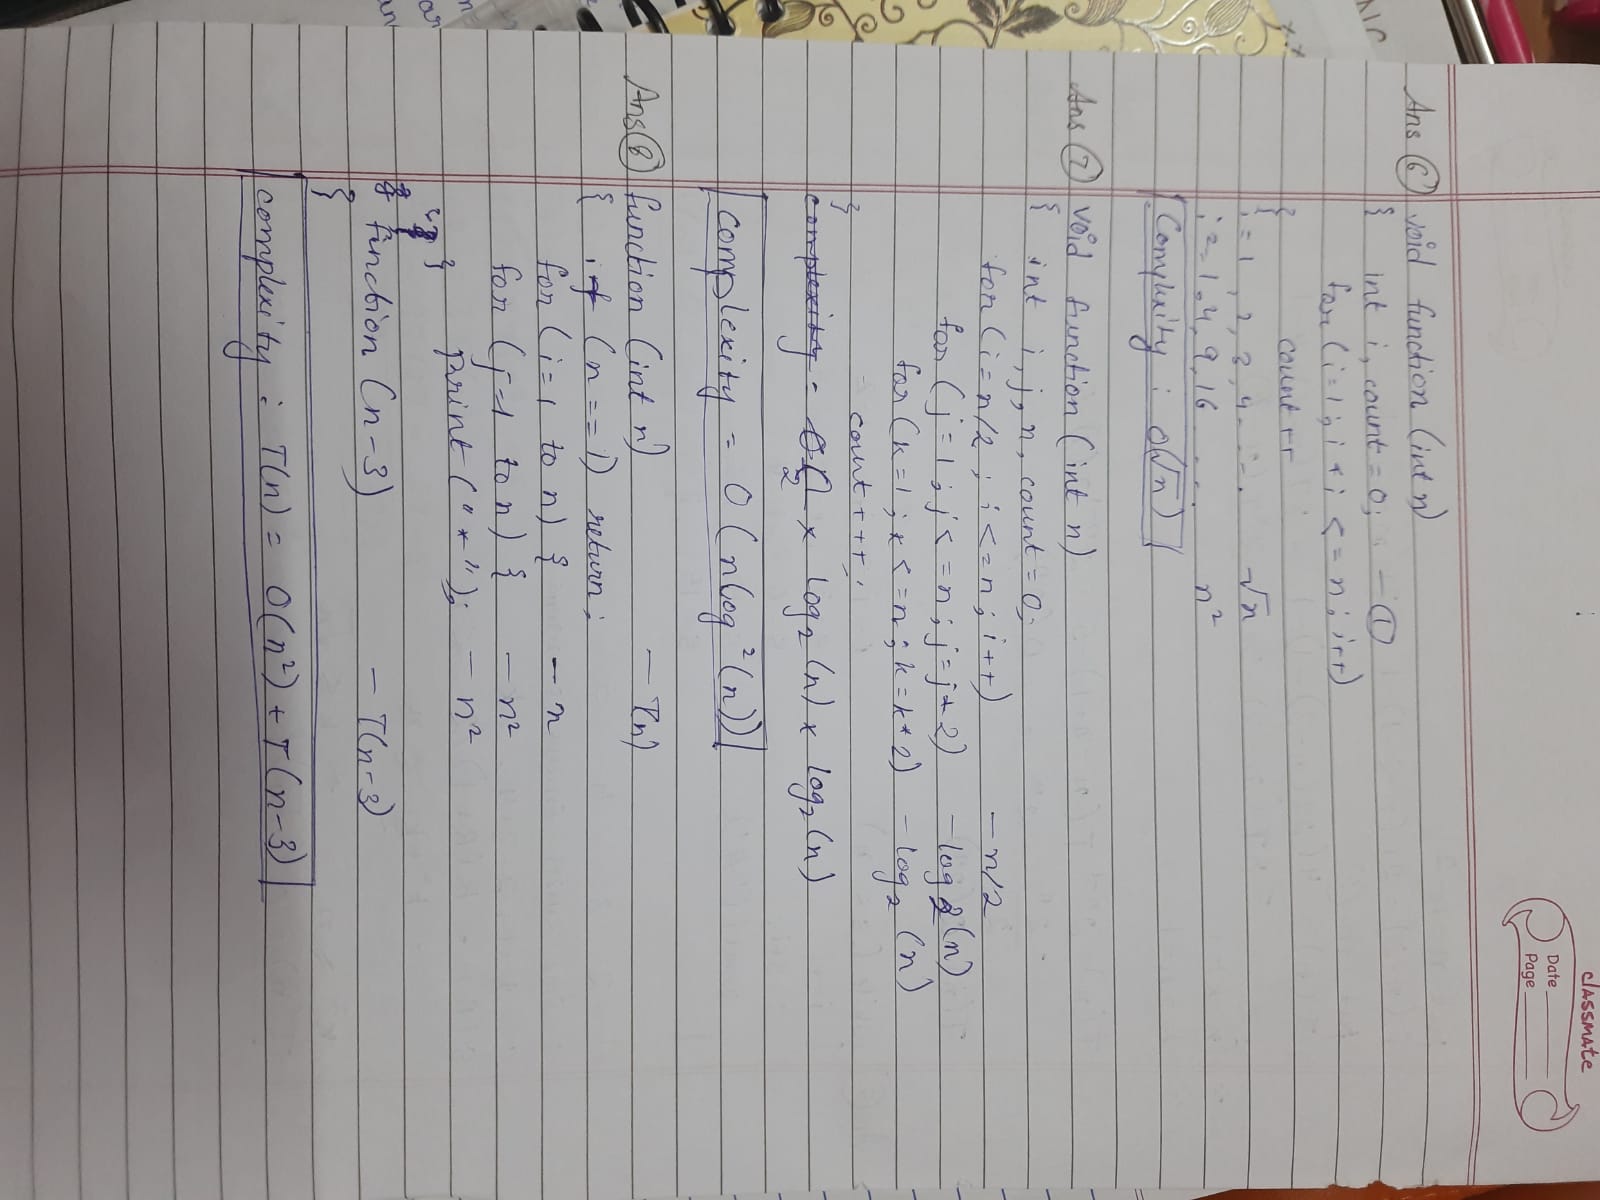 classmate
Date
Page
Ans ⑥ void function (int n)
{ int i, count = 0; - ①
for (i = 1; i * i <= n; i++)
count ++
}
i = 1, 2, 3, 4 .... √n
i² = 1, 4, 9, 16 .... n²
Complexity : O(√n)
Ans ⑦ void function (int n)
{ int i, j, n, count = 0;
for (i = n/2; i <= n; i++) - n/2
for (j = 1; j <= n; j = j * 2) - log₂(n)
for (k = 1; k <= n; k = k * 2) - log₂(n)
count +++;
}
complexity = n/2 × log₂(n) × log₂(n)
Complexity = O(n log²(n))
Ans ⑧ function (int n) - T(n)
{ if (n == 1) return;
for (i = 1 to n) { - n
for (j = 1 to n) { - n²
print ("*"); - n²
}
}
function (n-3) - T(n-3)
}
complexity : T(n) = O(n²) + T(n-3)